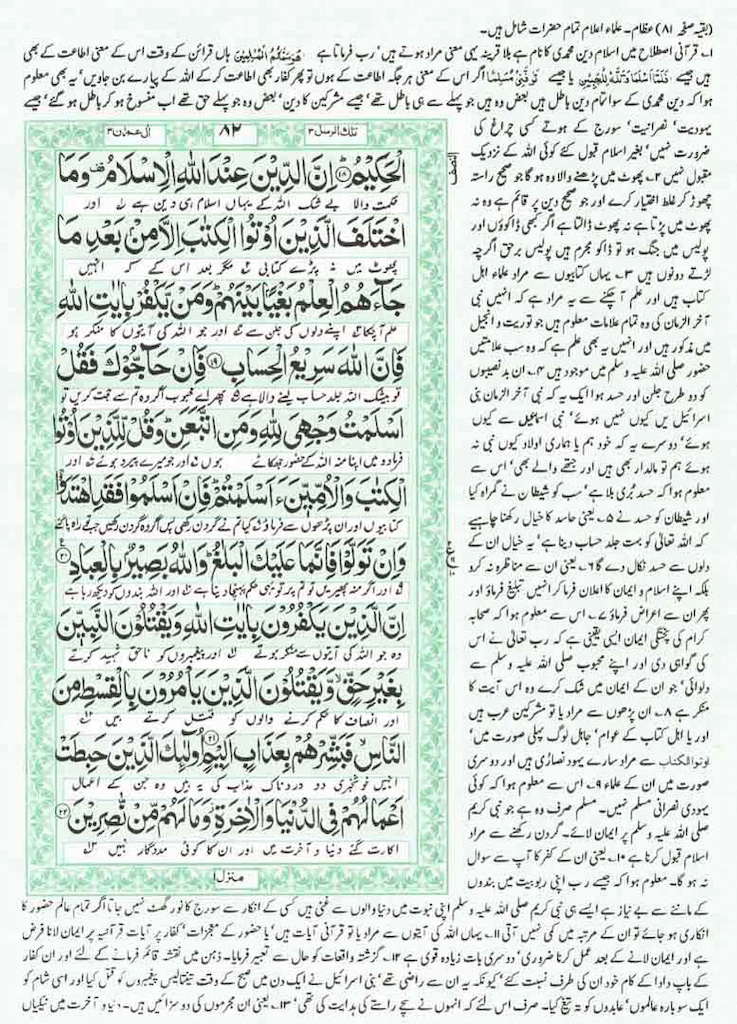 (بقیہ صفحہ ۸۱) عظام۔ علماء اعلام تمام حضرات شامل ہیں۔
۱۔ قرآنی اصطلاح میں اسلام دین محمدی کا نام ہے بلا قرینہ یہی معنی مراد ہوتے ہیں' رب فرماتا ہے هُوَسَمّٰكُمُ الْمُسْلِمِيْنَ ہاں قرائن کے وقت اس کے معنی اطاعت کے بھی
ہیں جیسے فَلَمَّا اَسْلَمَا وَتَلَّهٗ لِلْجَبِيْنِ یا جیسے تَوَفَّنِيْ مُسْلِمًا اگر اس کے معنی ہر جگہ اطاعت کے ہوں تو پھر کفار بھی اطاعت کر کے اللہ کے پیارے بن جاویں' یہ بھی معلوم
ہوا کہ دین محمدی کے سوا تمام دین باطل ہیں بعض وہ ہیں جو پہلے سے ہی باطل تھے' جیسے مشرکین کا دین' بعض وہ جو پہلے حق تھے اب منسوخ ہو کر باطل ہو گئے' جیسے
تلك الرسل ۳
۸۲
اٰل عمران ۳
الْحَكِيْمُ ؕ﴿۱۸﴾ اِنَّ الدِّيْنَ عِنْدَ اللّٰهِ الْاِسْلَامُ ۟ وَمَا
حکمت والا بے شک اللہ کے یہاں اسلام ہی دین ہے ۱ اور
اخْتَلَفَ الَّذِيْنَ اُوْتُوا الْكِتٰبَ اِلَّا مِنْۢ بَعْدِ مَا
پھوٹ میں نہ پڑے کتابی ۲ مگر بعد اس کے کہ انہیں
جَآءَهُمُ الْعِلْمُ بَغْيًۢا بَيْنَهُمْ ؕ وَمَنْ يَّكْفُرْ بِاٰيٰتِ اللّٰهِ
علم آچکا ۳ اپنے دلوں کی جلن سے ۴ اور جو اللہ کی آیتوں کا منکر ہو
فَاِنَّ اللّٰهَ سَرِيْعُ الْحِسَابِ ﴿۱۹﴾ فَاِنْ حَآجُّوْكَ فَقُلْ
تو بیشک اللہ جلد حساب لینے والا ہے ۵ پھر اے محبوب اگر وہ تم سے حجت کریں تو
اَسْلَمْتُ وَجْهِيَ لِلّٰهِ وَمَنِ اتَّبَعَنِ ؕ وَقُلْ لِّلَّذِيْنَ اُوْتُوا
فرما دو میں اپنا منہ اللہ کے حضور جھکائے ہوں ۶ اور جو میرے پیرو ہوئے ۷ اور
الْكِتٰبَ وَالْاُمِّيّٖنَ ءَاَسْلَمْتُمْ ؕ فَاِنْ اَسْلَمُوْا فَقَدِ اهْتَدَوْا ۚ
کتابیوں اور ان پڑھوں سے فرماؤ ۸ کیا تم نے گردن رکھی پس اگر وہ گردن رکھیں جب تو راہ پا گئے
وَاِنْ تَوَلَّوْا فَاِنَّمَا عَلَيْكَ الْبَلٰغُ ؕ وَاللّٰهُ بَصِيْرٌۢ بِالْعِبَادِ ﴿۲۰﴾
۹ اور اگر منہ پھیریں تو تم پر تو یہی حکم پہنچا دینا ہے ۱۰ اور اللہ بندوں کو دیکھ رہا ہے
اِنَّ الَّذِيْنَ يَكْفُرُوْنَ بِاٰيٰتِ اللّٰهِ وَيَقْتُلُوْنَ النَّبِيّٖنَ
وہ جو اللہ کی آیتوں سے منکر ہوتے ۱۱ اور پیغمبروں کو ناحق شہید کرتے
بِغَيْرِ حَقٍّ ۙ وَّيَقْتُلُوْنَ الَّذِيْنَ يَاْمُرُوْنَ بِالْقِسْطِ مِنَ
اور انصاف کا حکم کرنے والوں کو قتل کرتے ہیں ۱۲
النَّاسِ ۙ فَبَشِّرْهُمْ بِعَذَابٍ اَلِيْمٍ ﴿۲۱﴾ اُولٰٓئِكَ الَّذِيْنَ حَبِطَتْ
انہیں خوشخبری دو دردناک عذاب کی یہ ہیں وہ جن کے اعمال
اَعْمَالُهُمْ فِي الدُّنْيَا وَالْاٰخِرَةِ ۫ وَمَا لَهُمْ مِّنْ نّٰصِرِيْنَ ﴿۲۲﴾
اکارت گئے دنیا و آخرت میں اور ان کا کوئی مددگار نہیں ۱۳
منزل ۱
النصف
یہودیت' نصرانیت' سورج کے ہوتے کسی چراغ کی
ضرورت نہیں' بغیر اسلام قبول کئے کوئی اللہ کے نزدیک
مقبول نہیں ۲۔ پھوٹ میں پڑھنے والا وہ ہو گا جو صحیح راستہ
چھوڑ کر غلط اختیار کرے اور جو صحیح دین پر قائم ہے وہ نہ
پھوٹ میں پڑتا ہے نہ پھوٹ ڈالتا ہے اگر کبھی ڈاکوؤں اور
پولیس میں جنگ ہو تو ڈاکو مجرم ہیں پولیس برحق اگرچہ
لڑتے دونوں ہیں ۳۔ یہاں کتابیوں سے مراد علماء اہل
کتاب ہیں اور علم آ چکنے سے یہ مراد ہے کہ انہیں نبی
آخر الزمان کی وہ تمام علامات معلوم ہیں جو توریت و انجیل
میں مذکور ہیں اور انہیں یہ بھی علم ہے کہ وہ سب علامتیں
حضور صلی اللہ علیہ وسلم میں موجود ہیں ۴۔ ان بدنصیبوں
کو دو طرح جلن اور حسد ہوا ایک یہ کہ نبی آخر الزمان بنی
اسرائیل یں کیوں نہیں ہوئے' بنی اسماعیل سے کیوں
ہوئے' دوسرے یہ کہ خود ہم یا ہماری اولاد کیوں نبی نہ
ہوئے ہم تو مالدار بھی ہیں اور جتھے والے بھی' اس سے
معلوم ہوا کہ حسد بُری بلا ہے' سب کو شیطان نے گمراہ کیا
اور شیطان کو حسد نے ۵۔ یعنی حاسد کا خیال رکھنا چاہیے
کہ اللہ تعالیٰ کو بہت جلد حساب دینا ہے' یہ خیال ان کے
دلوں سے حسد نکال دے گا ۶۔ یعنی ان سے مناظرہ نہ کرو
بلکہ اپنے اسلام و ایمان کا اعلان فرما کر انہیں تبلیغ فرماؤ اور
پھر ان سے اعراض فرماؤ ۷۔ اس سے معلوم ہوا کہ صحابہ
کرام کی پختگی ایمان ایسی یقینی ہے کہ رب تعالیٰ نے اس
کی گواہی دی اور اپنے محبوب صلی اللہ علیہ وسلم سے
دلوائی' جو ان کے ایمان میں شک کرے وہ اس آیت کا
منکر ہے ۸۔ ان پڑھوں سے مراد یا تو مشرکین عرب ہیں
اور یا اہل کتاب کے عوام' جاہل لوگ پہلی صورت میں'
اوتوا الکتاب سے مراد سارے یہود نصاریٰ ہیں اور دوسری
صورت میں ان کے علماء ۹۔ اس سے معلوم ہوا کہ کوئی
یہودی نصرانی مسلم نہیں۔ مسلم صرف وہ ہے جو نبی کریم
صلی اللہ علیہ وسلم پر ایمان لائے۔ گردن رکھنے سے مراد
اسلام قبول کرنا ہے ۱۰۔ یعنی ان کے کفر کا آپ سے سوال
نہ ہو گا۔ معلوم ہوا کہ جیسے رب اپنی ربوبیت میں بندوں
کے ماننے سے بے نیاز ہے ایسے ہی نبی کریم صلی اللہ علیہ وسلم اپنی نبوت میں دنیا والوں سے غنی ہیں کسی کے انکار سے سورج کا نور گھٹ نہیں جاتا اگر تمام عالم حضور کا
انکاری ہو جائے تو ان کے مرتبہ میں کمی نہیں آتی ۱۱۔ یہاں اللہ کی آیتوں سے مراد یا تو قرآنی آیات ہیں' یا حضور کے معجزات' کفار پر آیات قرآنیہ پر ایمان لانا فرض
ہے اور ایمان لانے کے بعد عمل کرنا ضروری' دوسری بات زیادہ قوی ہے ۱۲۔ گزشتہ واقعات کو حال سے تعبیر فرمایا۔ ذہن میں نقشہ قائم فرمانے کے لئے اور ان کفار
کے باپ دادا کے کام خود ان کی طرف نسبت کئے' کیونکہ یہ ان سے راضی تھے' بنی اسرائیل نے ایک دن میں صبح کے وقت تینتالیس پیغمبروں کو قتل کیا اور اسی شام کو
ایک سو بارہ عالموں' عابدوں کو تہ تیغ کیا۔ صرف اس لئے کہ انہوں نے سچے راستے کی ہدایت کی تھی' ۱۳۔ یعنی ان مجرموں کی دو سزائیں ہیں۔ دنیا و آخرت میں نیکیاں